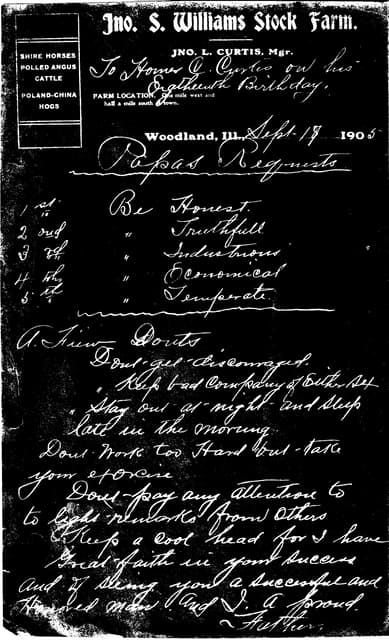 Jno. S. Williams Stock Farm.
JNO. L. CURTIS, Mgr.
SHIRE HORSES
POLLED ANGUS
CATTLE
POLAND-CHINA
HOGS
To Homer C. Curtis on his
Birthday.
FARM LOCATION: One mile west and
half a mile south of town.
Woodland, Ill., Sept 18 1905
Papas Requests
1 st Be Honest.
2 ond " Truthfull
3 rd " Industrious
4 th " Economical
5 th " Temperate
A Fiew Donts
Dont get discouraged.
" Keep bad Company of Either Sex
" Stay out at night and sleep
late in the morning.
Dont Work too Hard but take
your exorcise
Dont pay any attention to
to light remarks from others
Keep a cool head for I have
Great faith in your success
and if being you a successful and
Honored man and I. A proud.
Father.